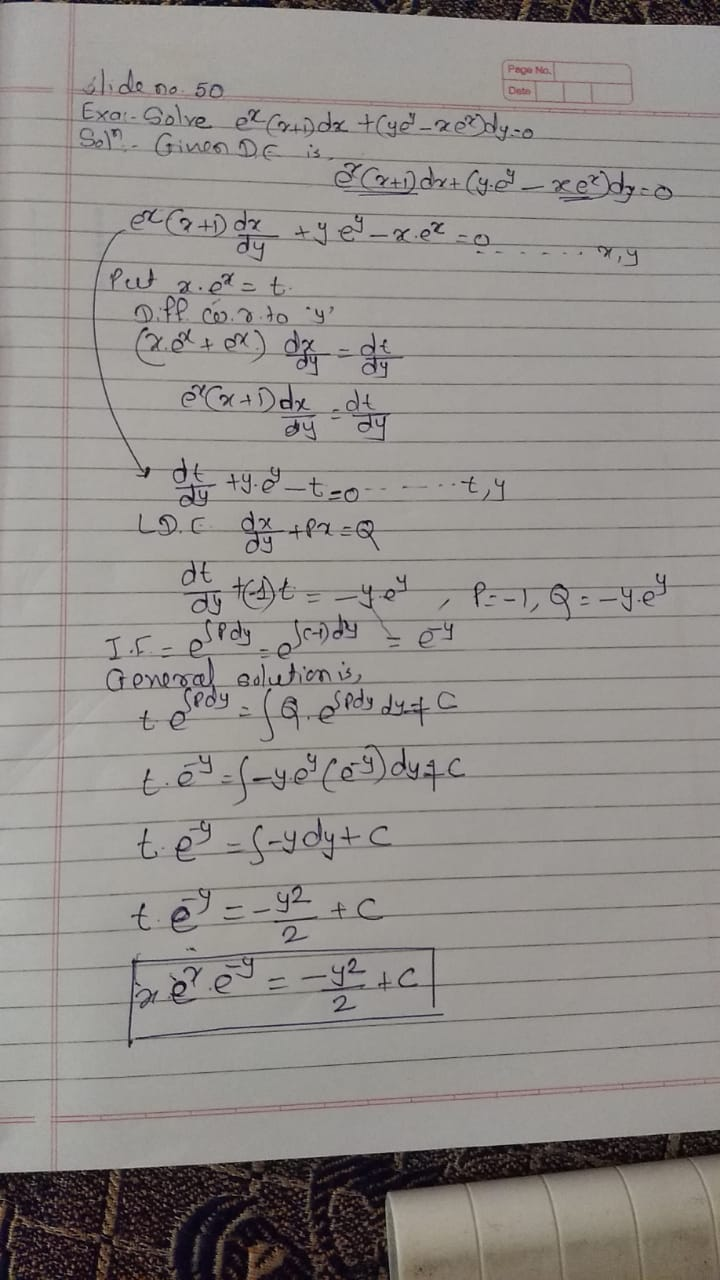 Slide no. 50
Page No.
Date
Exa:- Solve e^x(x+1)dx + (ye^y - xe^x)dy=0
Solⁿ:- Given D.E is,
e^x(x+1)dx+(y.e^y - xe^x)dy=0
e^x(x+1) dx/dy + y e^y - x.e^x = 0 ....... x,y
Put x.e^x = t.
Diff w.r.to 'y'
(x.e^x + e^x) dx/dy = dt/dy
e^x(x+1) dx/dy = dt/dy
dt/dy + y.e^y - t = 0 ....... t,y
L.D.E. dx/dy + Px = Q
dt/dy +(-1)t = -y.e^y , P=-1, Q=-y.e^y
I.F. = e^∫Pdy = e^∫(-1)dy = e^-y
General solution is,
t e^∫Pdy = ∫Q.e^∫Pdy dy + C
t.e^-y = ∫-y.e^y(e^-y)dy + C
t.e^-y = ∫-y dy + C
t.e^-y = -y²/2 + C
x e^x.e^-y = -y²/2 + C